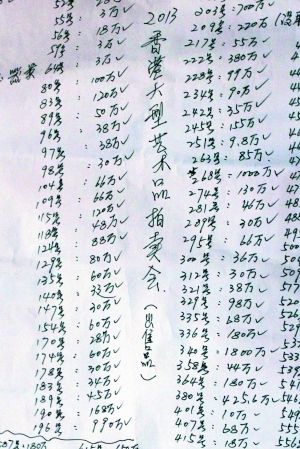 55号：3万✓
56号：18万✓
59号：3万✓
64号：3万✓
：100万✓
80号：120万✓
83号：50万✓
89号：38万✓
96号：38万✓
97号：30万✓
98号：66万✓
104号：66万✓
109号：120万✓
115号：48万✓
118号：88万✓
124号：80万✓
129号：60万✓
135号：33万✓
140号：30万✓
147号：60万✓
154号：28万✓
170号：60万✓
174号：30万✓
178号：34万✓
183号：45万✓
189号：168万✓
190号：990万✓
196号
587号：180万
2013香港大型艺术品拍卖会（出售品）
203号：700万✓
209号：220万
217号：55万✓
222号：380万✓
228号：99万✓
234号：90万✓
242号：35万✓
245号：155万✓
251号：9.8万✓
263号：85万✓
268号：1000万✓
274号：130万✓
281号：46万✓
289号：30万✓
295号：66万✓
300号：36万✓
312号：30万✓
321号：38万✓
329号：98万✓
335号：68万✓
336号：180万✓
340号：1800万✓
358号：44万✓
364号：180万✓
380号：425.6万✓
401号：10万✓
407号：68万✓
415号：18万✓